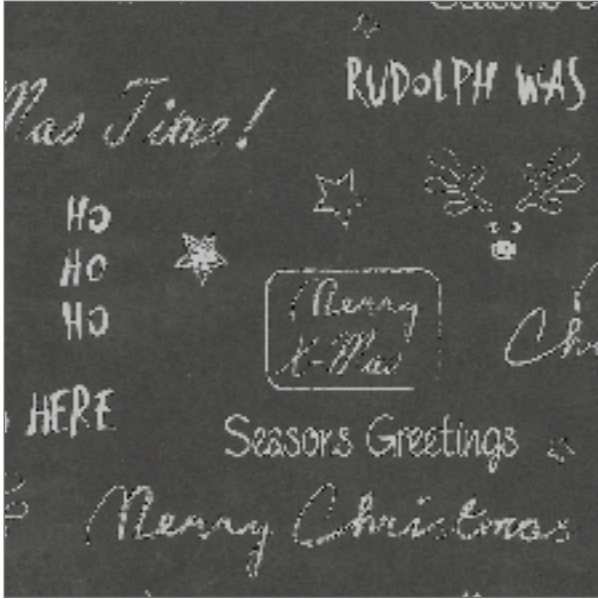 Seasons
RUDOLPH WAS
Mas Time!
HO
HO
HO
Merry
X-Mas
HERE
Seasons Greetings
Merry Christmas